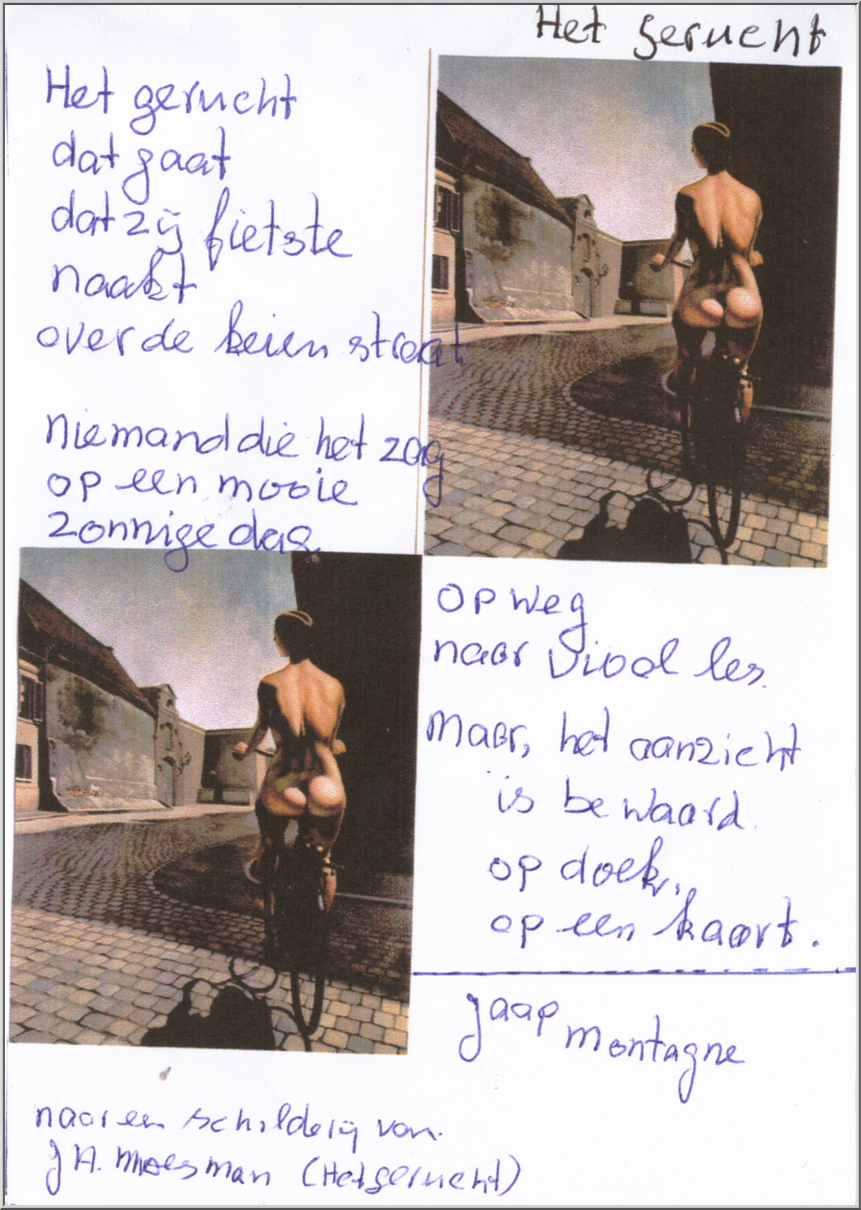 Het gerucht
Het gerucht
dat gaat
dat zij fietste
naakt
over de keien straat
niemand die het zag
op een mooie
zonnige dag
op weg
naar viool les.
Maar, het aanzicht
is bewaard.
op doek,
op een kaart.
Jaap
Montagne
naar een schilderij van
J.H. Moesman (Het gerucht)